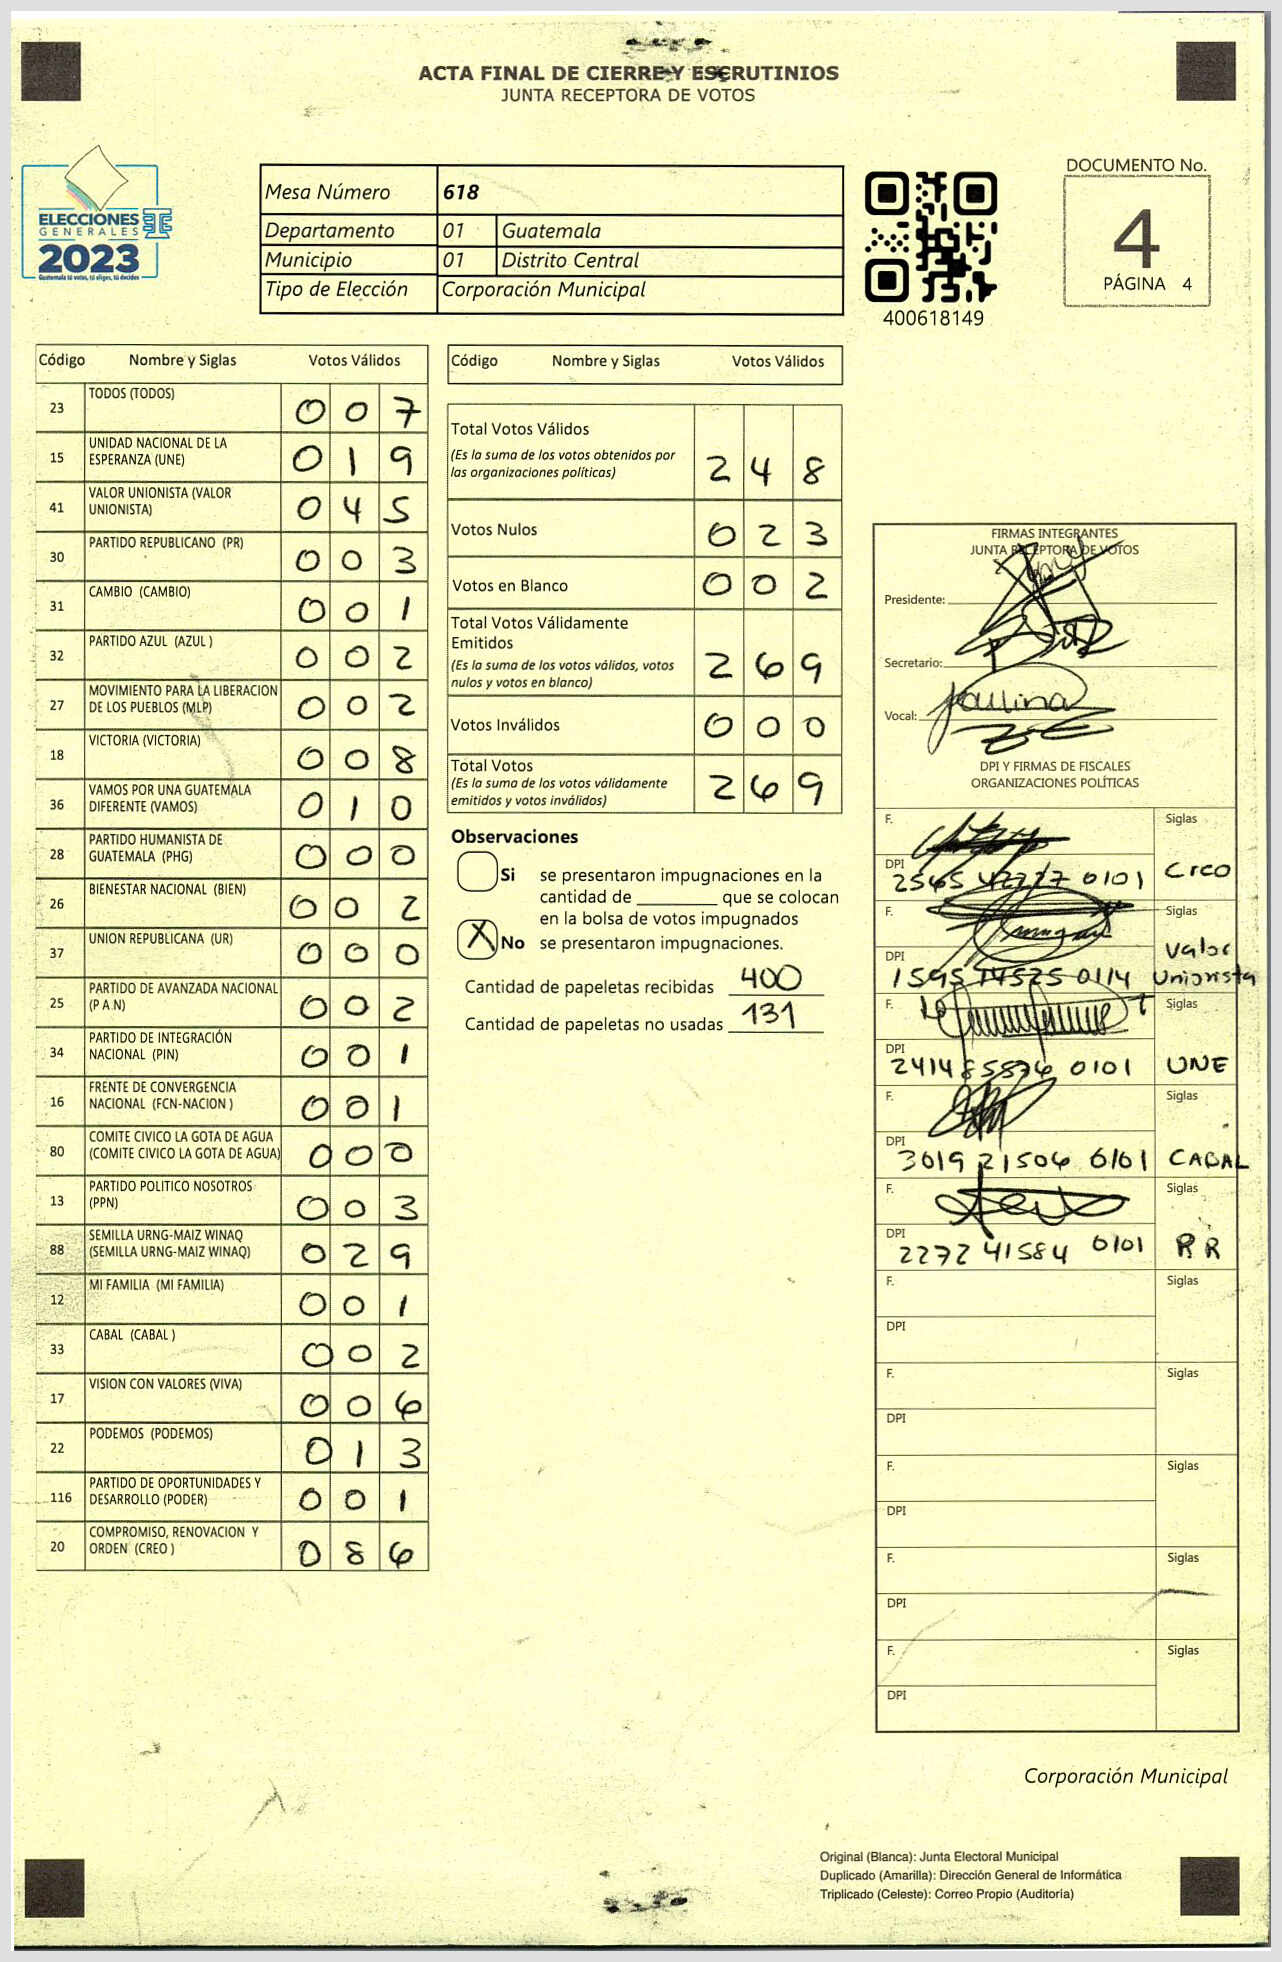 ACTA FINAL DE CIERRE Y ESCRUTINIOS
JUNTA RECEPTORA DE VOTOS
ELECCIONES
GENERALES
2023
Guatemala tú votas, tú eliges, tú decides
Mesa Número 618
Departamento 01 Guatemala
Municipio 01 Distrito Central
Tipo de Elección Corporación Municipal
400618149
DOCUMENTO No.
4
PÁGINA 4
Código Nombre y Siglas Votos Válidos
23 TODOS (TODOS) 0 0 7
15 UNIDAD NACIONAL DE LA ESPERANZA (UNE) 0 1 9
41 VALOR UNIONISTA (VALOR UNIONISTA) 0 4 5
30 PARTIDO REPUBLICANO (PR) 0 0 3
31 CAMBIO (CAMBIO) 0 0 1
32 PARTIDO AZUL (AZUL ) 0 0 2
27 MOVIMIENTO PARA LA LIBERACION DE LOS PUEBLOS (MLP) 0 0 2
18 VICTORIA (VICTORIA) 0 0 8
36 VAMOS POR UNA GUATEMALA DIFERENTE (VAMOS) 0 1 0
28 PARTIDO HUMANISTA DE GUATEMALA (PHG) 0 0 0
26 BIENESTAR NACIONAL (BIEN) 0 0 2
37 UNION REPUBLICANA (UR) 0 0 0
25 PARTIDO DE AVANZADA NACIONAL (P A N) 0 0 2
34 PARTIDO DE INTEGRACIÓN NACIONAL (PIN) 0 0 1
16 FRENTE DE CONVERGENCIA NACIONAL (FCN-NACION ) 0 0 1
80 COMITE CIVICO LA GOTA DE AGUA (COMITE CIVICO LA GOTA DE AGUA) 0 0 0
13 PARTIDO POLITICO NOSOTROS (PPN) 0 0 3
88 SEMILLA URNG-MAIZ WINAQ (SEMILLA URNG-MAIZ WINAQ) 0 2 9
12 MI FAMILIA (MI FAMILIA) 0 0 1
33 CABAL (CABAL ) 0 0 2
17 VISION CON VALORES (VIVA) 0 0 6
22 PODEMOS (PODEMOS) 0 1 3
116 PARTIDO DE OPORTUNIDADES Y DESARROLLO (PODER) 0 0 1
20 COMPROMISO, RENOVACION Y ORDEN (CREO ) 0 8 6
Código Nombre y Siglas Votos Válidos
Total Votos Válidos 2 4 8
(Es la suma de los votos obtenidos por
las organizaciones políticas)
Votos Nulos 0 2 3
Votos en Blanco 0 0 2
Total Votos Válidamente
Emitidos 2 6 9
(Es la suma de los votos válidos, votos
nulos y votos en blanco)
Votos Inválidos 0 0 0
Total Votos 2 6 9
(Es la suma de los votos válidamente
emitidos y votos inválidos)
Observaciones
Si se presentaron impugnaciones en la
cantidad de ________ que se colocan
en la bolsa de votos impugnados
X No se presentaron impugnaciones.
Cantidad de papeletas recibidas 400
Cantidad de papeletas no usadas 131
FIRMAS INTEGRANTES
JUNTA RECEPTORA DE VOTOS
Presidente:
Secretario:
Vocal: Paulina
DPI Y FIRMAS DE FISCALES
ORGANIZACIONES POLÍTICAS
F. Siglas
DPI 0101 Creo
F. Siglas
DPI 0114 Valor Unionista
F. Siglas
DPI 0101 UNE
F. Siglas
DPI 3019 21506 0101 CABAL
F. Siglas
DPI 2272 41584 0101 RR
F. Siglas
DPI
F. Siglas
DPI
F. Siglas
DPI
F. Siglas
DPI
F. Siglas
DPI
Corporación Municipal
Original (Blanca): Junta Electoral Municipal
Duplicado (Amarilla): Dirección General de Informática
Triplicado (Celeste): Correo Propio (Auditoría)